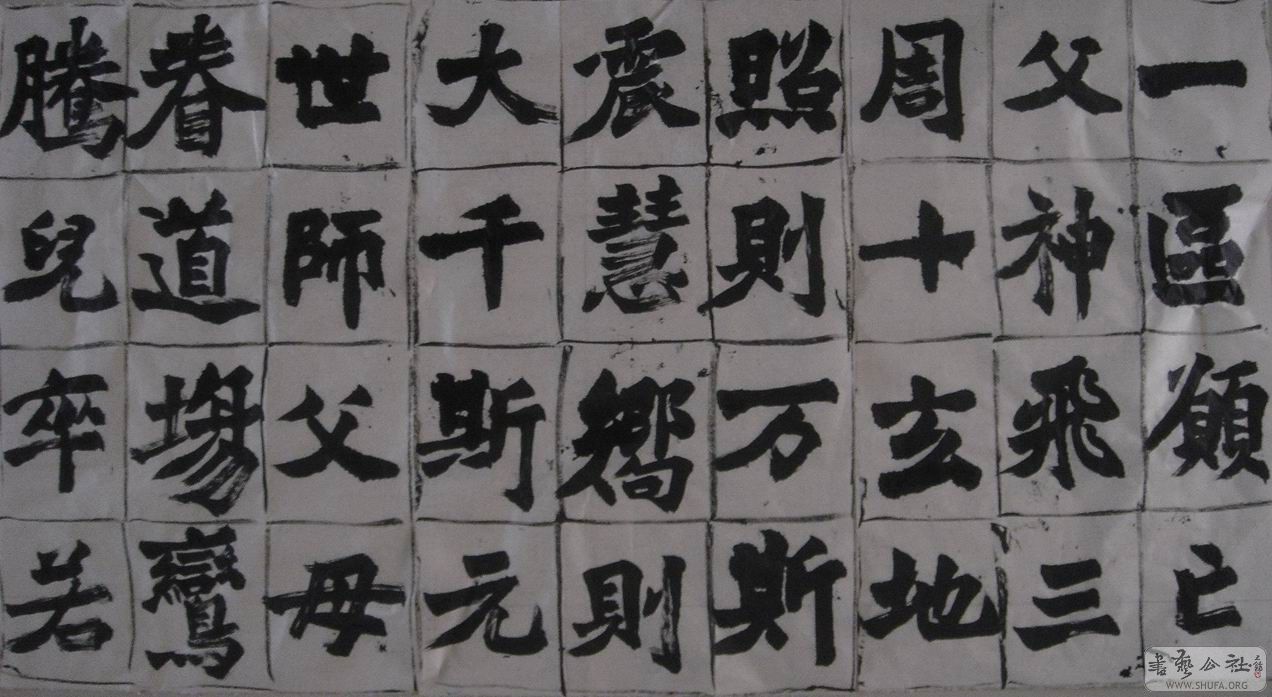 一區願亡
父神飛三
周十玄地
照則万斯
震慧嚮則
大千斯元
世師父母
眷道場鸞
騰兒率若
書藝公社
WWW.SHUFA.ORG